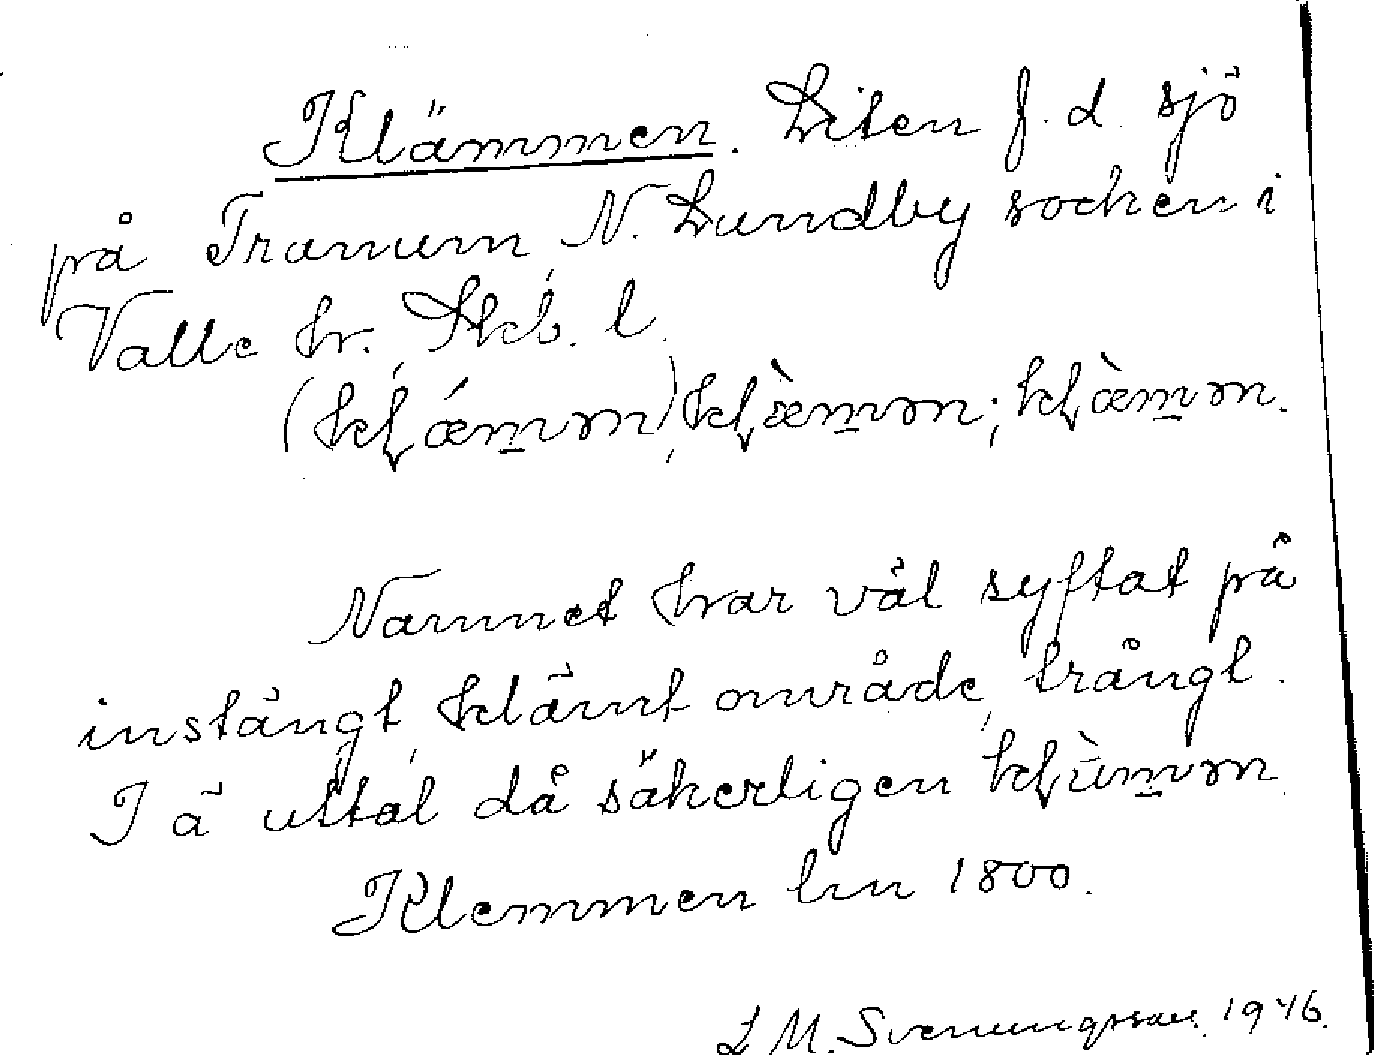 Klämmen. Liten f. d. sjö
på Tranum, N. Lundby socken i
Valle hr. Skb. l.
Namnet har väl syftat på
instängt, klämt område, trångt.
I ä uttal då säkerligen
Klemmen lm 1800.
L M. Svenungsson. 1946.